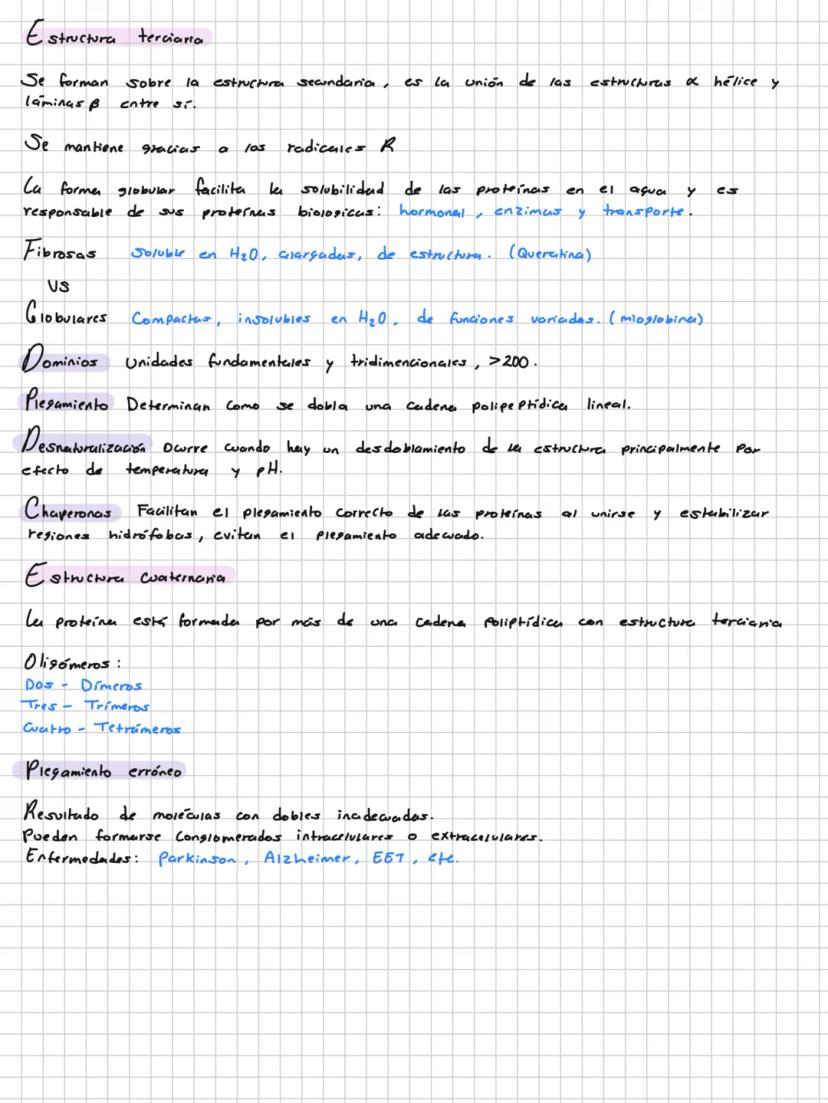 Estructura terciaria
Se forman sobre la estructura secundaria, es la unión de las estructuras α hélice y
láminas β entre sí.
Se mantiene gracias a los radicales R
La forma globular facilita la solubilidad de las proteínas en el agua y es
responsable de sus proteínas biologicas: hormonal, enzimas y transporte.
Fibrosas Soluble en H₂O, alargadas, de estructura. (Queratina)
VS
Globulares Compactas, insolubles en H₂O, de funciones variadas. (mioglobina)
Dominios Unidades fundamentales y tridimencionales, >200.
Plegamiento Determinan como se dobla una cadena polipeptídica lineal.
Desnaturalización Ocurre cuando hay un desdoblamiento de la estructura principalmente por
efecto de temperatura y pH.
Chaperonas Facilitan el plegamiento correcto de las proteínas al unirse y estabilizar
regiones hidrófobas, evitan el plegamiento adecuado.
Estructura cuaternaria
La proteína está formada por más de una cadena poliptídica con estructura terciaria
Oligómeros:
Dos - Dímeros
Tres - Trímeros
Cuatro - Tetrámeros
Plegamiento erróneo
Resultado de moléculas con dobles inadecuadas.
Pueden formarse conglomerados intracelulares o extracelulares.
Enfermedades: Parkinson, Alzheimer, EET, etc.